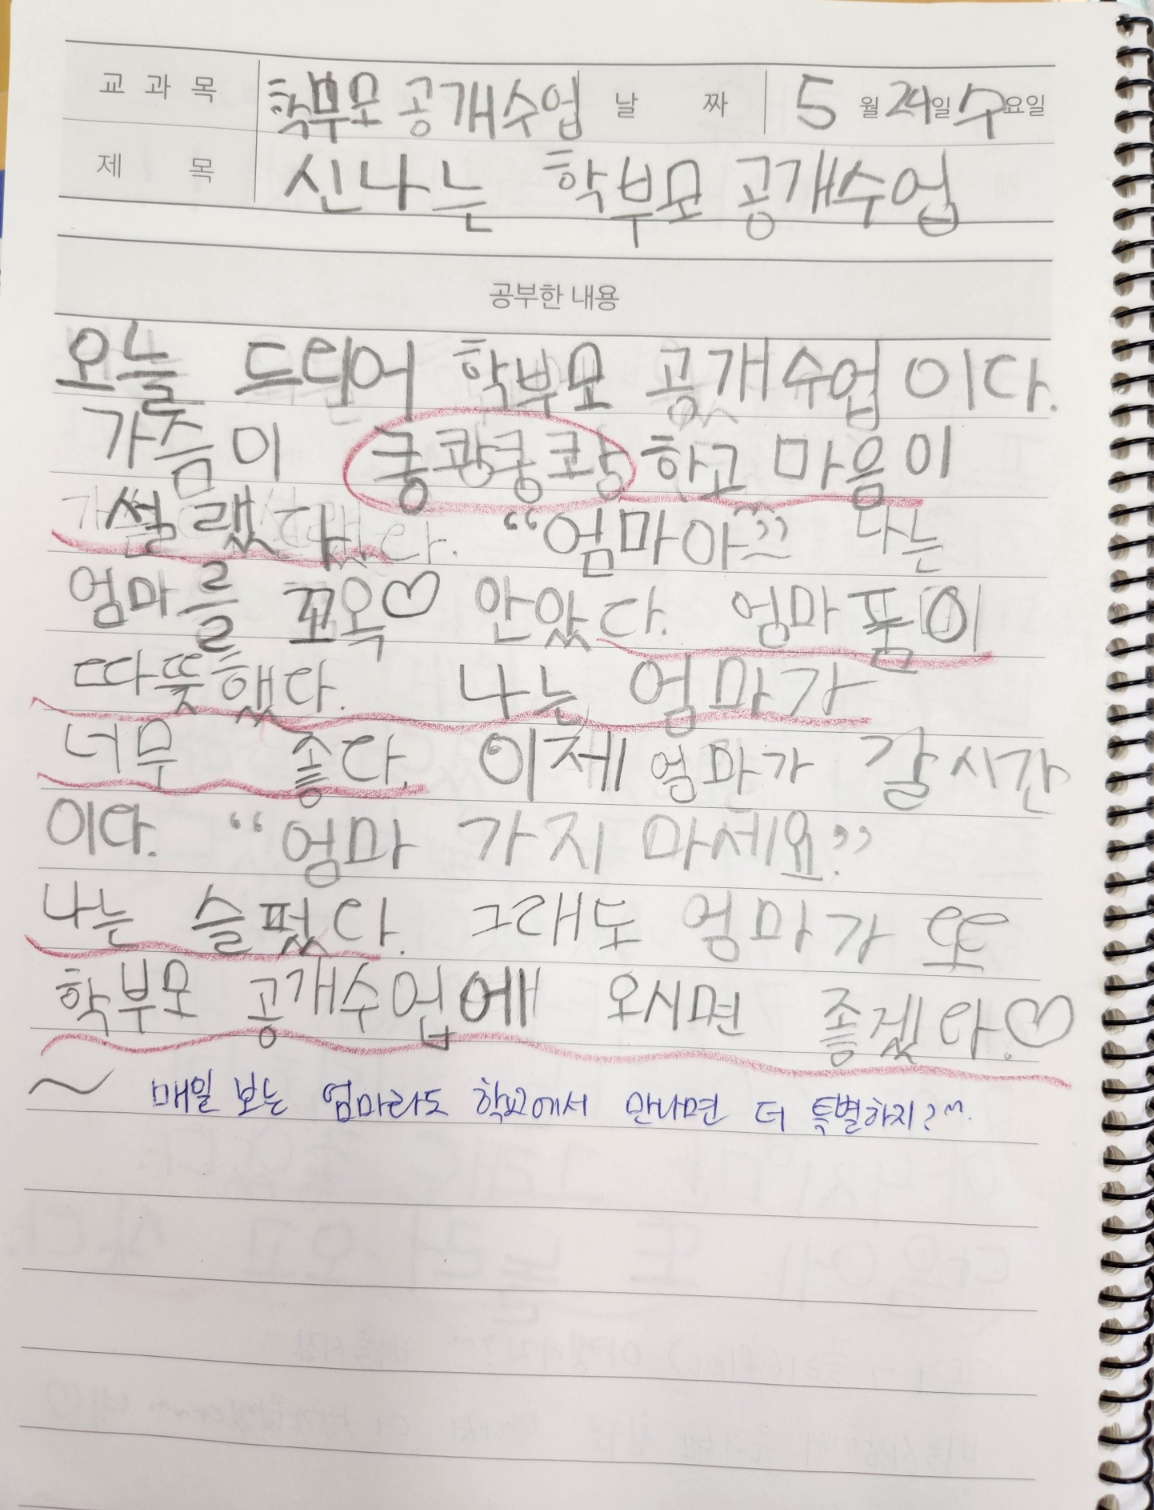 교 과 목 학부모 공개수업 날 짜 5 월 24일 수요일
제 목 신나는 학부모 공개수업
공부한 내용
오늘 드디어 학부모 공개수업이다.
가슴이 쿵쾅쿵쾅 하고 마음이
설렜다. “엄마아” 나는
엄마를 꼬옥♡ 안았다. 엄마품이
따뜻했다. 나는 엄마가
너무 좋다. 이제 엄마가 갈시간
이다. “엄마 가지 마세요.”
나는 슬펐다. 그래도 엄마가 또
학부모 공개수업에 오시면 좋겠다.♡
~ 매일 보는 엄마라도 학교에서 만나면 더 특별하지?^^.